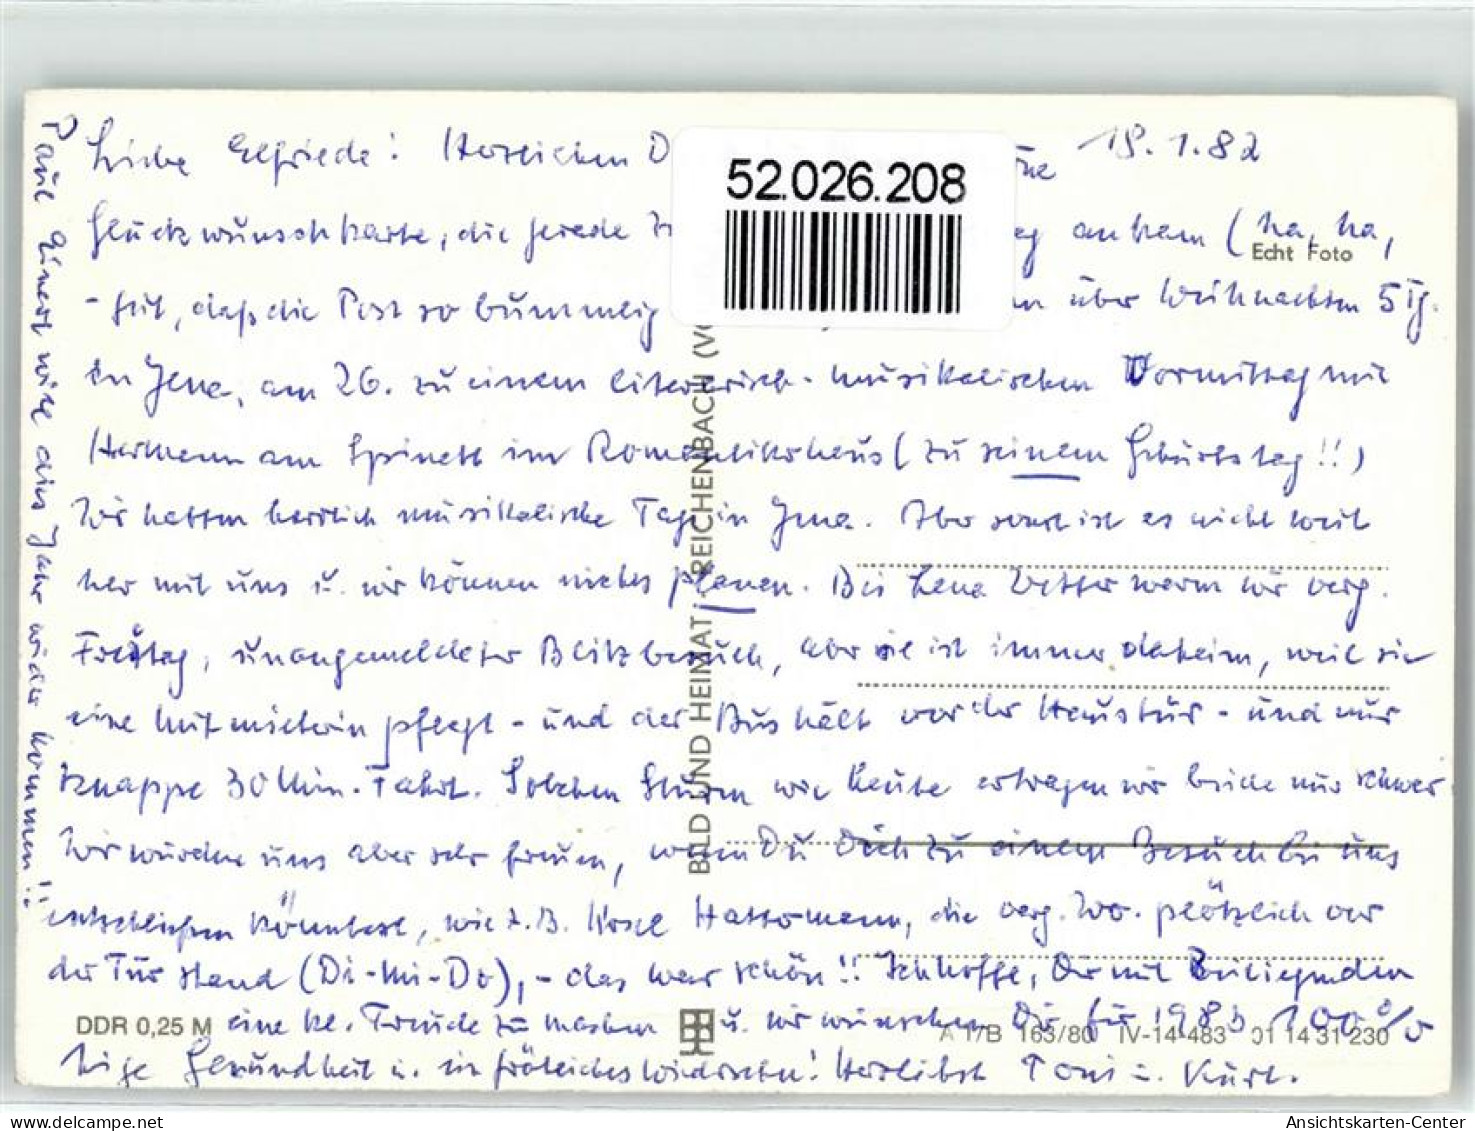 18.1.82
Liebe Elfriede! Herzlichen D
Glückwunschkarte, die gerade zu ankam (ha, ha,
Echt Foto
- gut, daß die Post so bummelig über Weihnachten 5 Tg.
in Jena, am 26. zu einem literarisch-musikalischen Vormittag mit
Hermann am Spinett im Romantikerhaus (zu seinem Geburtstag!!)
Wir hatten herrlich musikalische Tage in Jena. Aber sonst ist es nicht weit
her mit uns u. wir können nichts planen. Bei Lena Vetter waren wir verg.
Freitag, unangemeldeter Blitzbesuch, aber sie ist immer daheim, weil sie
eine Mitmieterin pflegt - und der Bus hält vor der Haustür - und nur
knappe 30 Min. Fahrt. Solchen Sturm wie heute ertragen wir beide nur schwer
Wir würden uns aber sehr freuen, wenn Du Dich zu einem Besuch bei uns
entschließen könntest, wie z.B. Hattomann, die verg. Wo. plötzlich vor
der Tür stand (Di-Mi-Do), - das war schön!! Ich hoffe, Dir mit Beiliegendem
eine kl. Freude zu machen u. wir wünschen Dir für 1983 100%
tige Gesundheit u. ein fröhliches Wiedersehn! Herzlichst Toni u. Kurt.
Paul Einert wird dies Jahr wieder kommen!!
52.026.208
BILD UND HEIMAT REICHENBACH (VO
DDR 0,25 M
A 1/B 163/80 IV-14-483 01 14 31 230
Ansichtskarten-Center